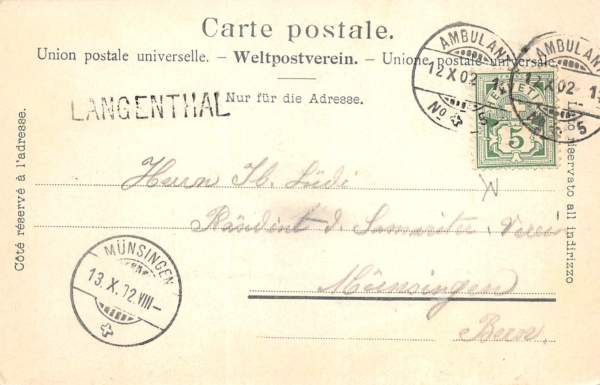 Carte postale.
Union postale universelle. – Weltpostverein. – Unione postale universale.
AMBULANT
12 X 02
No 5
AMBULANT
12 X 02
No 5
LANGENTHAL
Nur für die Adresse.
HELVETIA
5
Côté réservé à l'adresse.
Lato riservato all indirizzo
Herrn Lüdi
Präsident d. Samariter Verein
Münsingen
Bern.
MÜNSINGEN
13. X. 02. VIII –